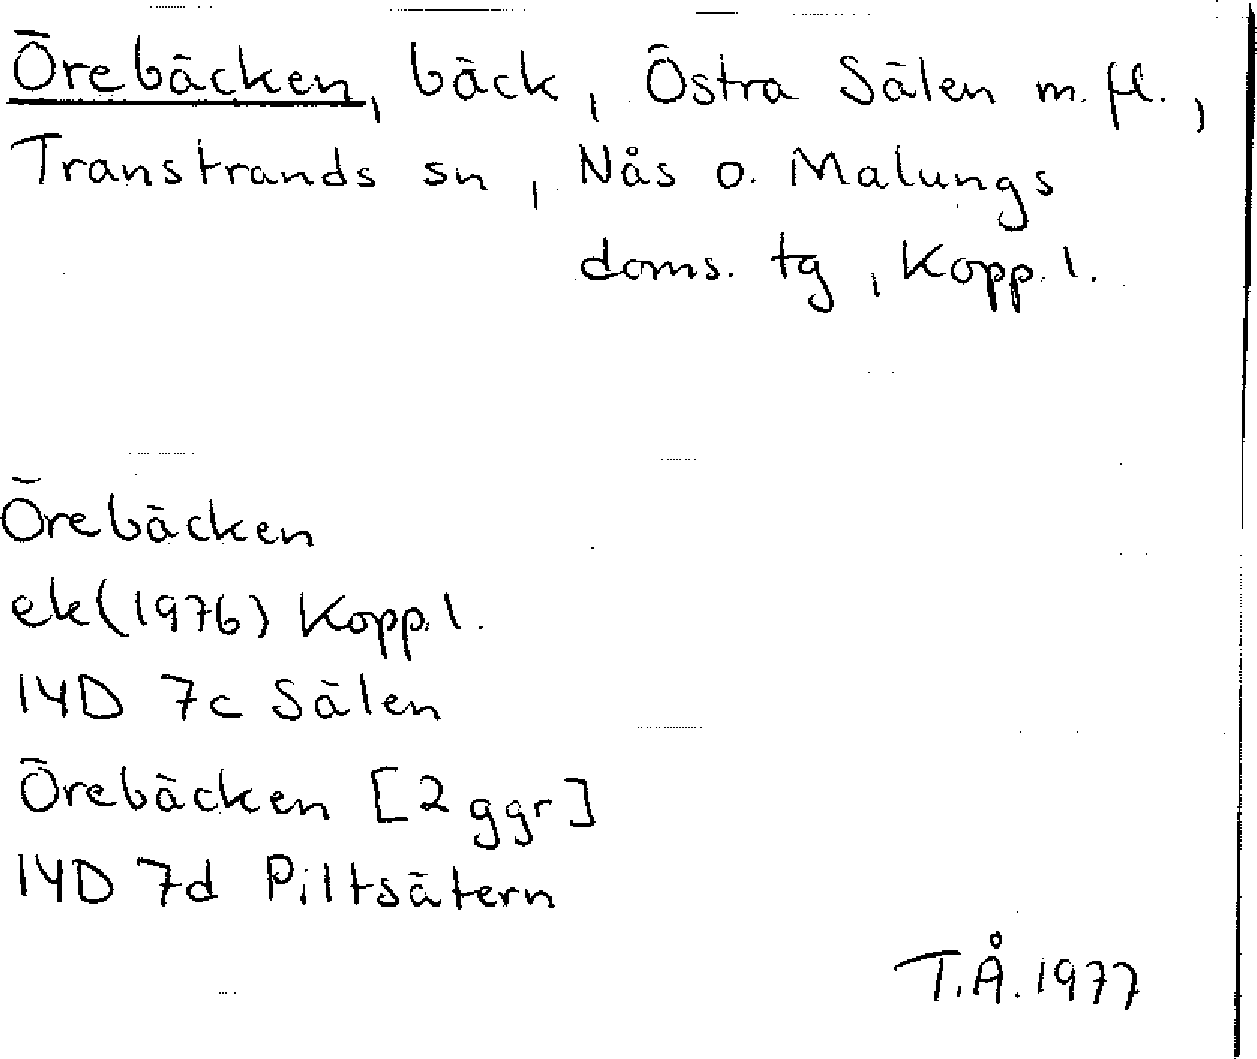 Örebäcken, bäck, Östra Sälen m.fl.,
Transtrands sn, Nås o. Malungs
doms. tg, Kopp.l.
Örebäcken
ek(1976) Kopp.l.
14D 7c Sälen
Örebäcken [2 ggr]
14D 7d Piltsätern
T.Å.1977